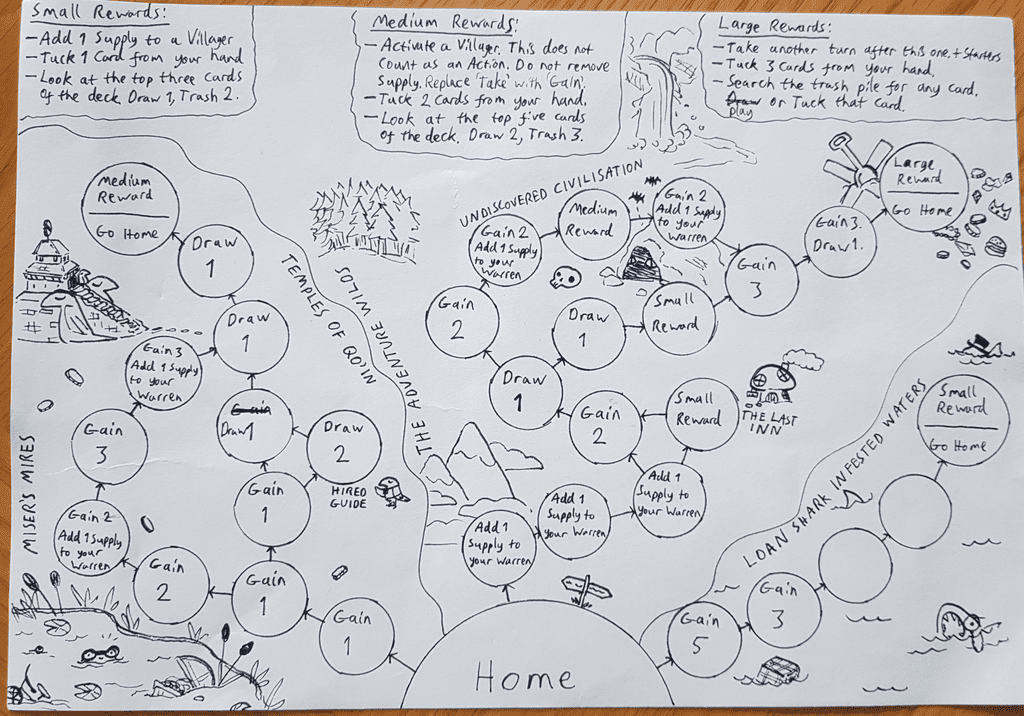 Small Rewards:
- Add 1 Supply to a Villager
- Tuck 1 Card from your hand
- Look at the top three cards
of the deck. Draw 1, Trash 2.
Medium Rewards:
- Activate a Villager. This does not
Count as an Action. Do not remove
Supply. Replace 'Take' with 'Gain'.
- Tuck 2 Cards from your hand.
- Look at the top five cards
of the deck. Draw 2, Trash 3.
Large Rewards:
- Take another turn after this one. + Starters
- Tuck 3 Cards from your hand.
- Search the trash pile for any card.
Draw or Tuck that card.
play
Medium
Reward
Go Home
Draw
1
Draw
1
Gain 3
Add 1 Supply
to your
Warren
Gain
3
Gain 2
Add 1 Supply
to your
Warren
Gain
2
Gain
1
Gain
1
Gain
1
Gain
Draw 1
Draw
2
HIRED
GUIDE
MISER'S MIRES
TEMPLES OF QOLON
THE ADVENTURE WILDS
UNDISCOVERED CIVILISATION
Gain 2
Add 1 Supply
to your
Warren
Medium
Reward
Gain 2
Add 1 Supply
to your
Warren
Gain
3
Gain 3.
Draw 1.
Large
Reward
Go Home
Gain
2
Draw
1
Small
Reward
Draw
1
Gain
2
Small
Reward
THE LAST
INN
Add 1
Supply to
your Warren
Add 1
Supply to
your Warren
Add 1
Supply to
your Warren
LOAN SHARK INFESTED WATERS
Small
Reward
Go Home
Gain
3
Gain
5
Home